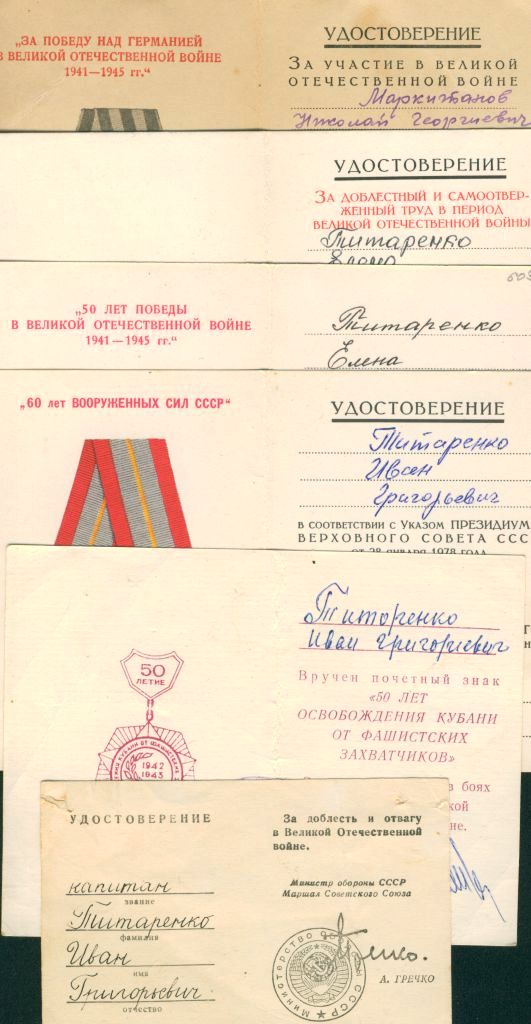 „ЗА ПОБЕДУ НАД ГЕРМАНИЕЙ
В ВЕЛИКОЙ ОТЕЧЕСТВЕННОЙ ВОЙНЕ
1941—1945 гг.“
УДОСТОВЕРЕНИЕ
ЗА УЧАСТИЕ В ВЕЛИКОЙ
ОТЕЧЕСТВЕННОЙ ВОЙНЕ
Маркитанов
Николай Георгиевич
УДОСТОВЕРЕНИЕ
ЗА ДОБЛЕСТНЫЙ И САМООТВЕР-
ЖЕННЫЙ ТРУД В ПЕРИОД
ВЕЛИКОЙ ОТЕЧЕСТВЕННОЙ ВОЙНЫ
Титаренко
„50 ЛЕТ ПОБЕДЫ
В ВЕЛИКОЙ ОТЕЧЕСТВЕННОЙ ВОЙНЕ
1941—1945 гг.“
Титаренко
Елена
„60 лет ВООРУЖЕННЫХ СИЛ СССР“
УДОСТОВЕРЕНИЕ
Титаренко
Иван
Григорьевич
В СООТВЕТСТВИИ С УКАЗОМ ПРЕЗИДИУМ
ВЕРХОВНОГО СОВЕТА ССС
от 28 ЯНВАРЯ 1978 ГОДА
50
ЛЕТИЕ
КУБАНИ ОТ ФАШИСТСКИХ
1942
1943
Титоренко
Иван Григориевич
Вручен почетный знак
«50 ЛЕТ
ОСВОБОЖДЕНИЯ КУБАНИ
ОТ ФАШИСТСКИХ
ЗАХВАТЧИКОВ»
в боях
УДОСТОВЕРЕНИЕ
капитан
звание
Титаренко
фамилия
Иван
имя
Григорьевич
отчество
За доблесть и отвагу
в Великой Отечественной
войне.
Министр обороны СССР
Маршал Советского Союза
Министерство обороны СССР
А. ГРЕЧКО